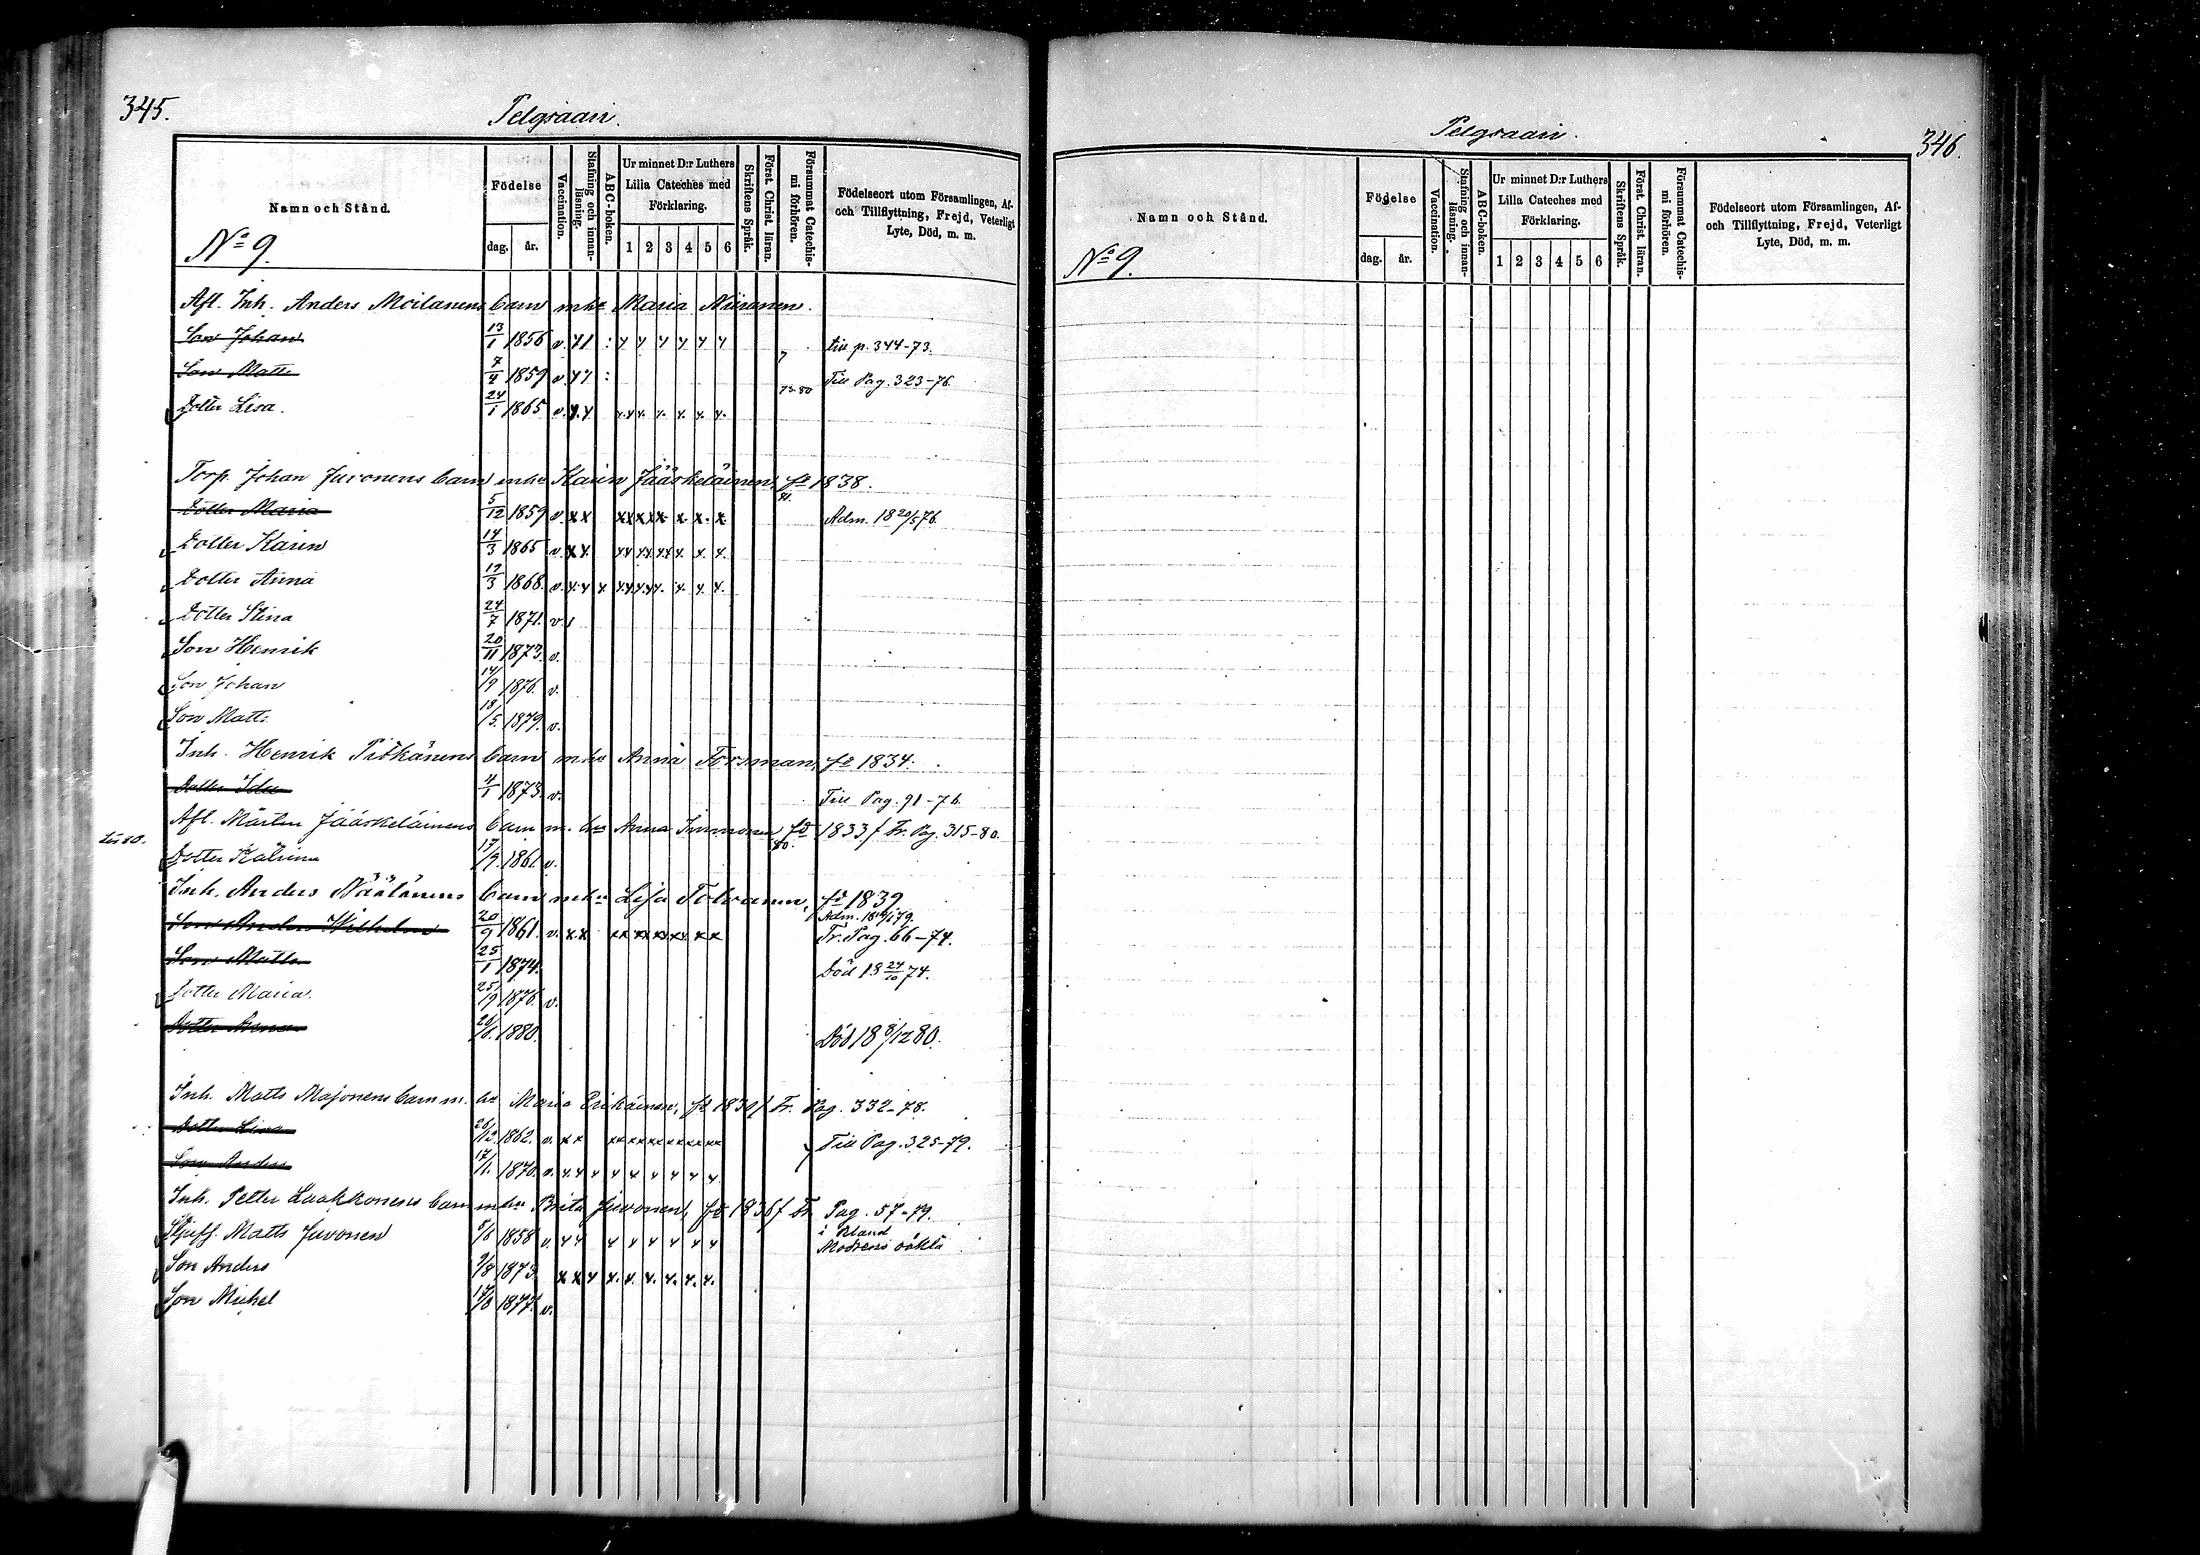 345.
Pelgraari.
Namn och Stånd.
No 9.
Födelse
dag.
år.
Vaccination.
Stafning och innanläsning.
ABC-boken.
Ur minnet D:r Luthers
Lilla Cateches med
Förklaring.
1 2 3 4 5 6
Skriftens Språk.
Först. Christ. läran.
Försummat Catechismi förhören.
Födelseort utom Församlingen, Af-
och Tillflyttning, Frejd, Veterligt
Lyte, Död, m. m.
Afl. Inh. Anders Moilanens barn m. hu Maria Niiranen.
Son Johan 13/1 1856 v. till p. 344-73.
Son Matts 1859 v. Till Pag. 323-76. 73.80
Dotter Lisa. 24/1 1865 v.
Torp. Johan Juvonens barn m hu Karin Jääskeläinen, fd 1838.
Dotter Maria 5/12 1859 v. x x Adm. 18 20/5 76.
Dotter Karin 14/3 1865 v.
Dotter Anna 1868. v.
Dotter Stina 24/7 1871. v.
Son Henrik 20/11 1873. v.
Son Johan 14/9 1876. v.
Son Matts 18/5. 1879. v.
Inh. Henrik Pitkänens barn m hu Anna Forsman, fd 1834.
Dotter Ida 4/1 1873. v. Till Pag. 91-76.
Afl. Mårten Jääskeläinens barn m. hu Anna Immonen fd 1833 / Fr. Pag. 315-80.
Dotter Katrina 17/9. 1861 v. 80.
Inh. Anders Näätänens barn m hu Lisa Tolvanen, fd 1839
Son Anders Wilhelm 20/9 1861. v. x x Adm. 79. Fr. Pag. 66-74.
Son Matts 25/1 1874. Död 18 24/10 74.
Dotter Maria. 1876. v.
Dotter Anna 1880. Död 18 8/12 80.
Inh. Matts Majonens barn m. hu Maria Erikäinen, fd 1839 / Fr. Pag. 332-78.
Dotter Lisa 26/12. 1862. v. x x Till Pag. 325-79.
Son Anders 17/1. 1870. v.
Inh. Petter Laakkonens barn m hu Brita Juvonen, fd 1836 / Fr. Pag. 57-79.
Styfs. Matts Juvonen 1858 v. Modrens oäkta
Son Anders 9/8 1873.
Son Michel 1877. v.
Pelgraari.
346.
Namn och Stånd.
No 9.
Födelse
dag.
år.
Vaccination.
Stafning och innanläsning.
ABC-boken.
Ur minnet D:r Luthers
Lilla Cateches med
Förklaring.
1 2 3 4 5 6
Skriftens Språk.
Först. Christ. läran.
Försummat Catechismi förhören.
Födelseort utom Församlingen, Af-
och Tillflyttning, Frejd, Veterligt
Lyte, Död, m. m.